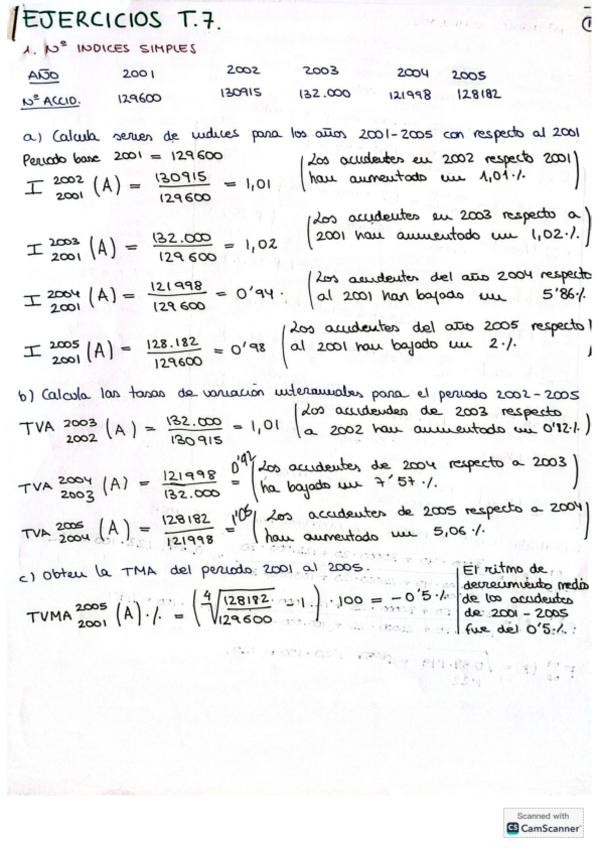 EJERCICIOS T.7.
1. Nº INDICES SIMPLES
AÑO 2001 2002 2003 2004 2005
Nº ACCID. 129600 130915 132.000 121998 128182
a) Calcula series de indices para los años 2001-2005 con respecto al 2001
Periodo base 2001 = 129600
I 2002/2001 (A) = 130915/129600 = 1,01 (Los accidentes en 2002 respecto 2001 han aumentado un 1,01.%)
I 2003/2001 (A) = 132.000/129600 = 1,02 (Los accidentes en 2003 respecto a 2001 han aumentado un 1,02.%)
I 2004/2001 (A) = 121998/129600 = 0'94. (Los accidentes del año 2004 respecto al 2001 han bajado un 5'86.%
I 2005/2001 (A) = 128.182/129600 = 0'98 (Los accidentes del año 2005 respecto al 2001 han bajado un 2.%
b) Calcula las tasas de variación interanuales para el periodo 2002-2005
TVA 2003/2002 (A) = 132.000/130915 = 1,01 (Los accidentes de 2003 respecto a 2002 han aumentado un 0'82.%)
TVA 2004/2003 (A) = 121998/132.000 = 0'92 (Los accidentes de 2004 respecto a 2003 ha bajado un 7'57.%)
TVA 2005/2004 (A) = 128182/121998 = 1'05 (Los accidentes de 2005 respecto a 2004 han aumentado un 5,06.%
c) Obten la TMA del periodo 2001 al 2005.
TVMA 2005/2001 (A).% = (⁴√128182/129600 - 1.) . 100 = -0'5.%
El ritmo de
decrecimiento medio
de los accidentes
de 2001-2005
fue del 0'5.%.
Scanned with
CS CamScanner